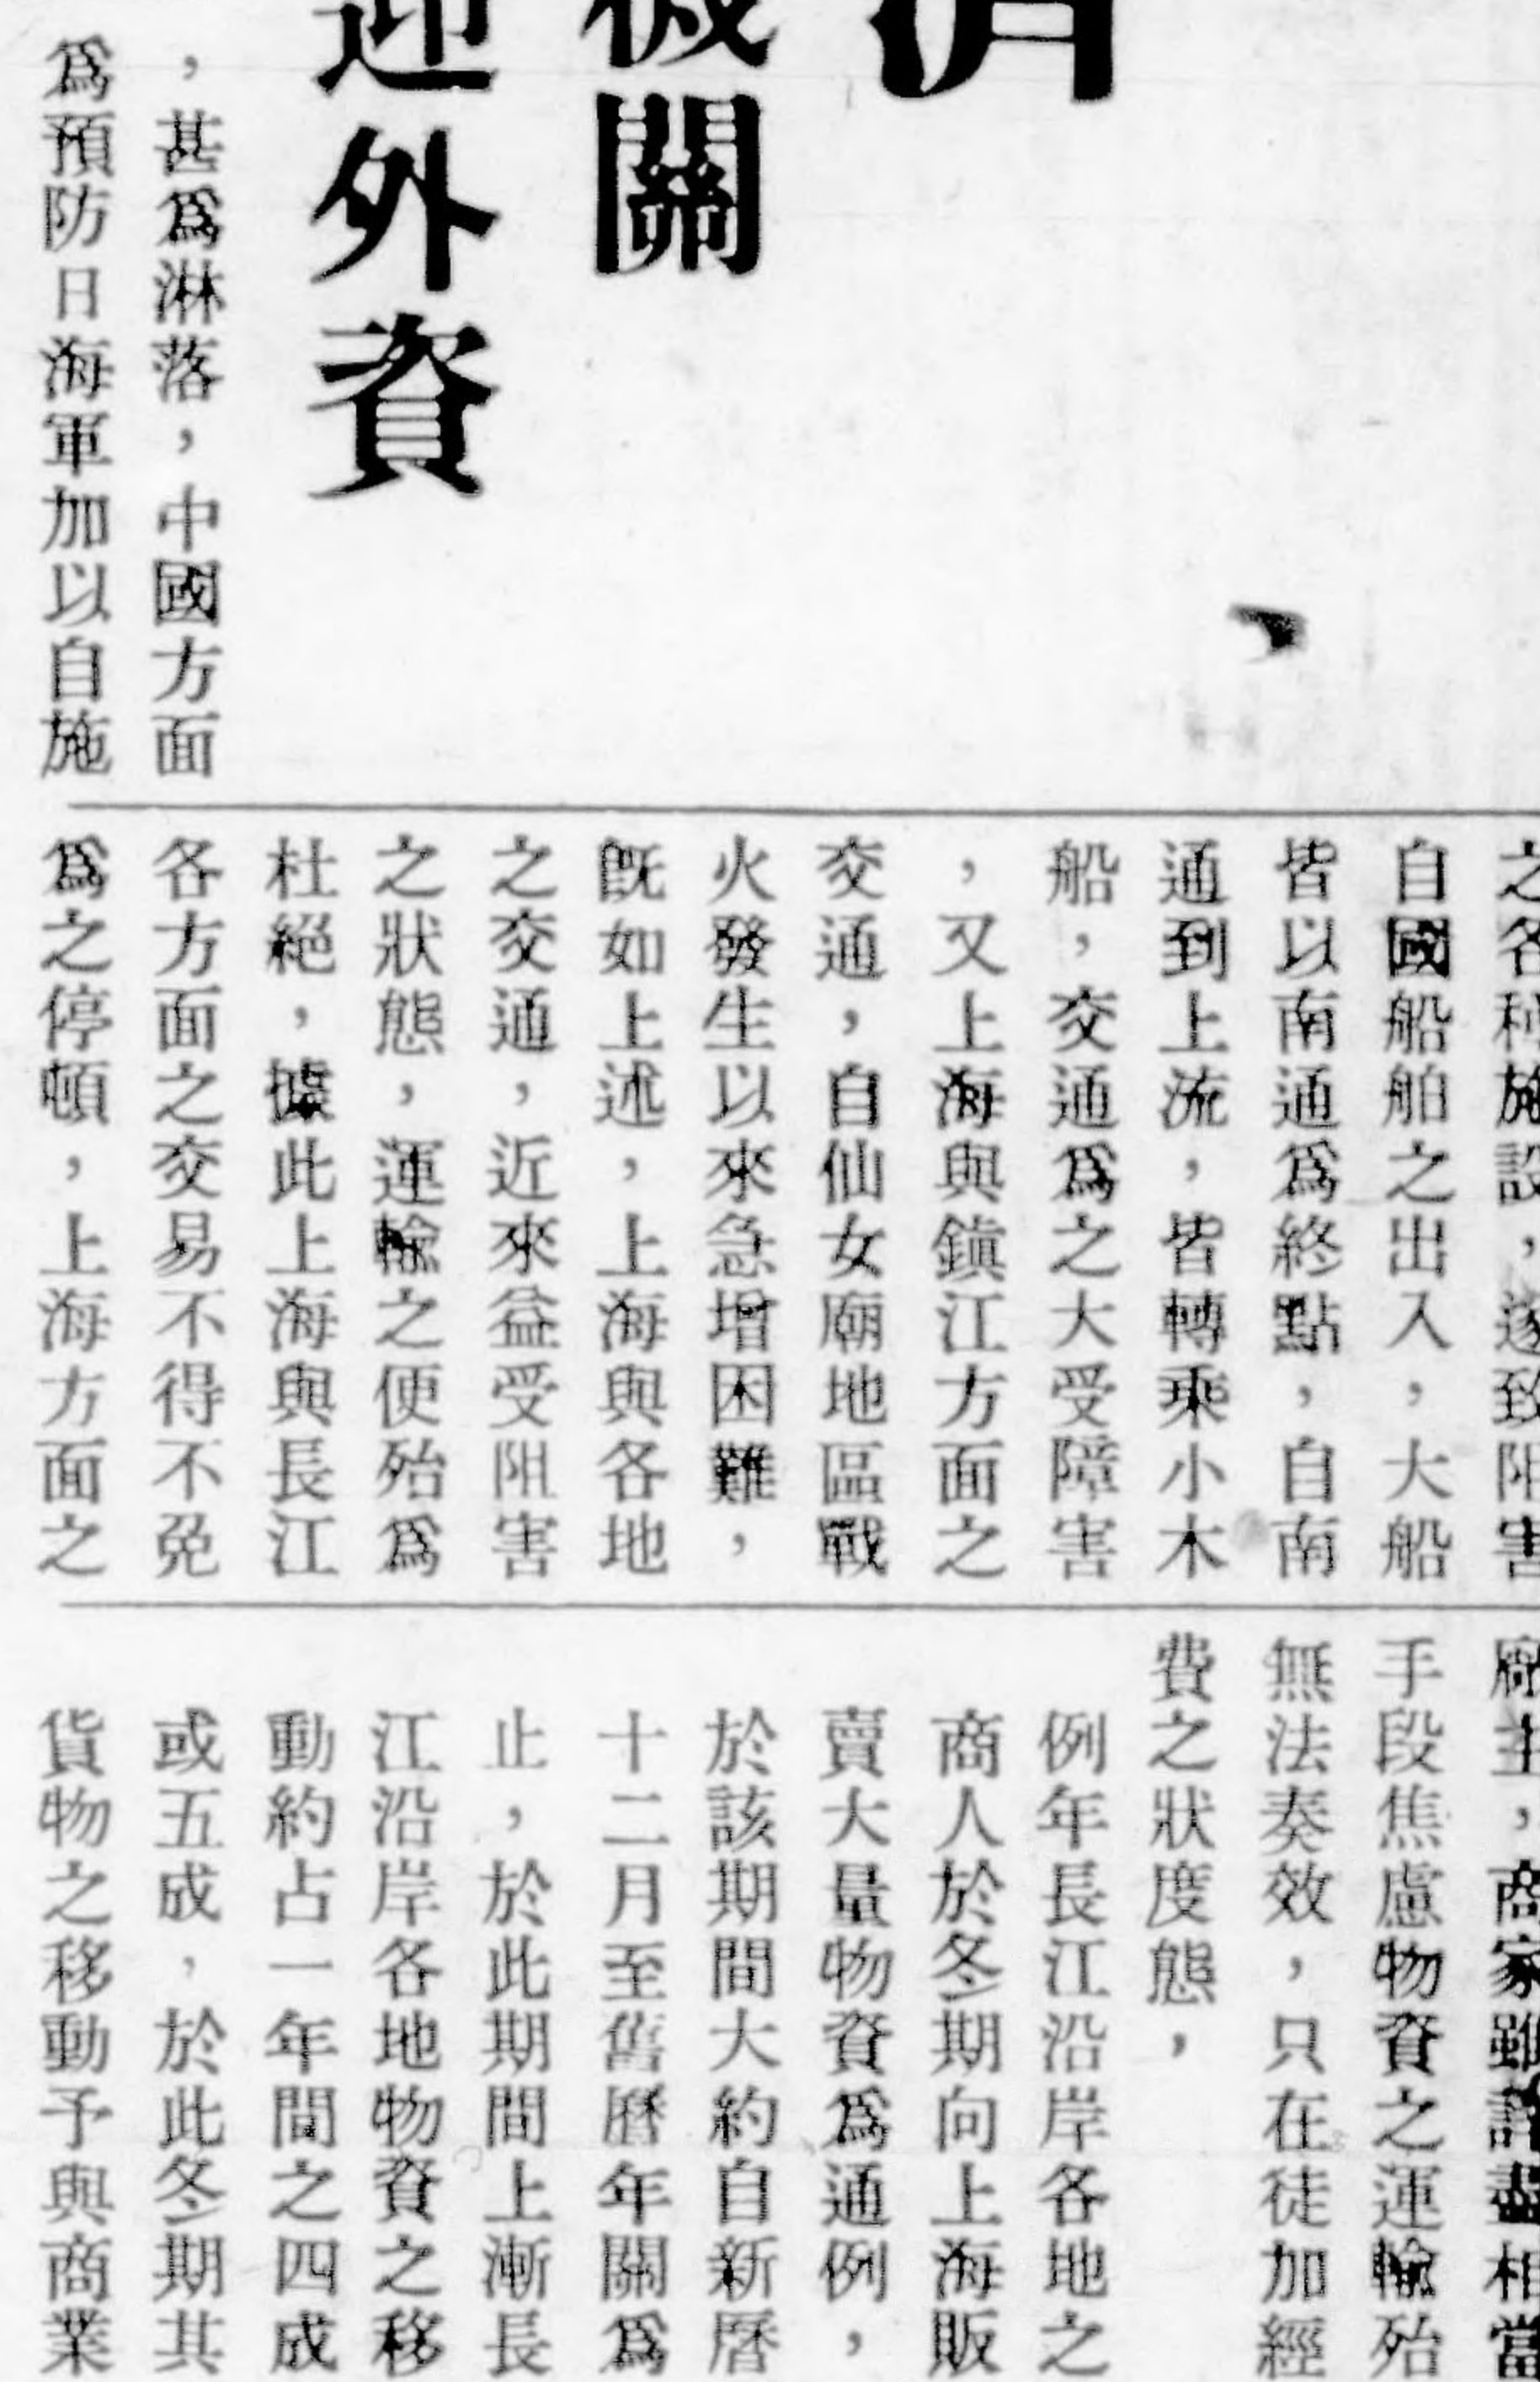 機關
迎外資
，甚爲淋落，中國方面
爲預防日海軍加以自施
之各種施設，遂致阻害
自國船舶之出入，大船
皆以南通爲終點，自南
通到上流，皆轉乘小木
船，交通爲之大受障害
，又上海與鎭江方面之
交通，自仙女廟地區戰
火發生以來急增困難，
旣如上述，上海與各地
之交通，近來益受阻害
之狀態，運輸之便殆爲
杜絕，據此上海與長江
各方面之交易不得不免
爲之停頓，上海方面之
廠主，商家雖許盡相當
手段焦慮物資之運輸殆
無法奏效，只在徒加經
費之狀度態，
例年長江沿岸各地之
商人於冬期向上海販
賣大量物資爲通例，
於該期間大約自新曆
十二月至舊曆年關爲
止，於此期間上漸長
江沿岸各地物資之移
動約占一年間之四成
或五成，於此冬期其
貨物之移動予與商業